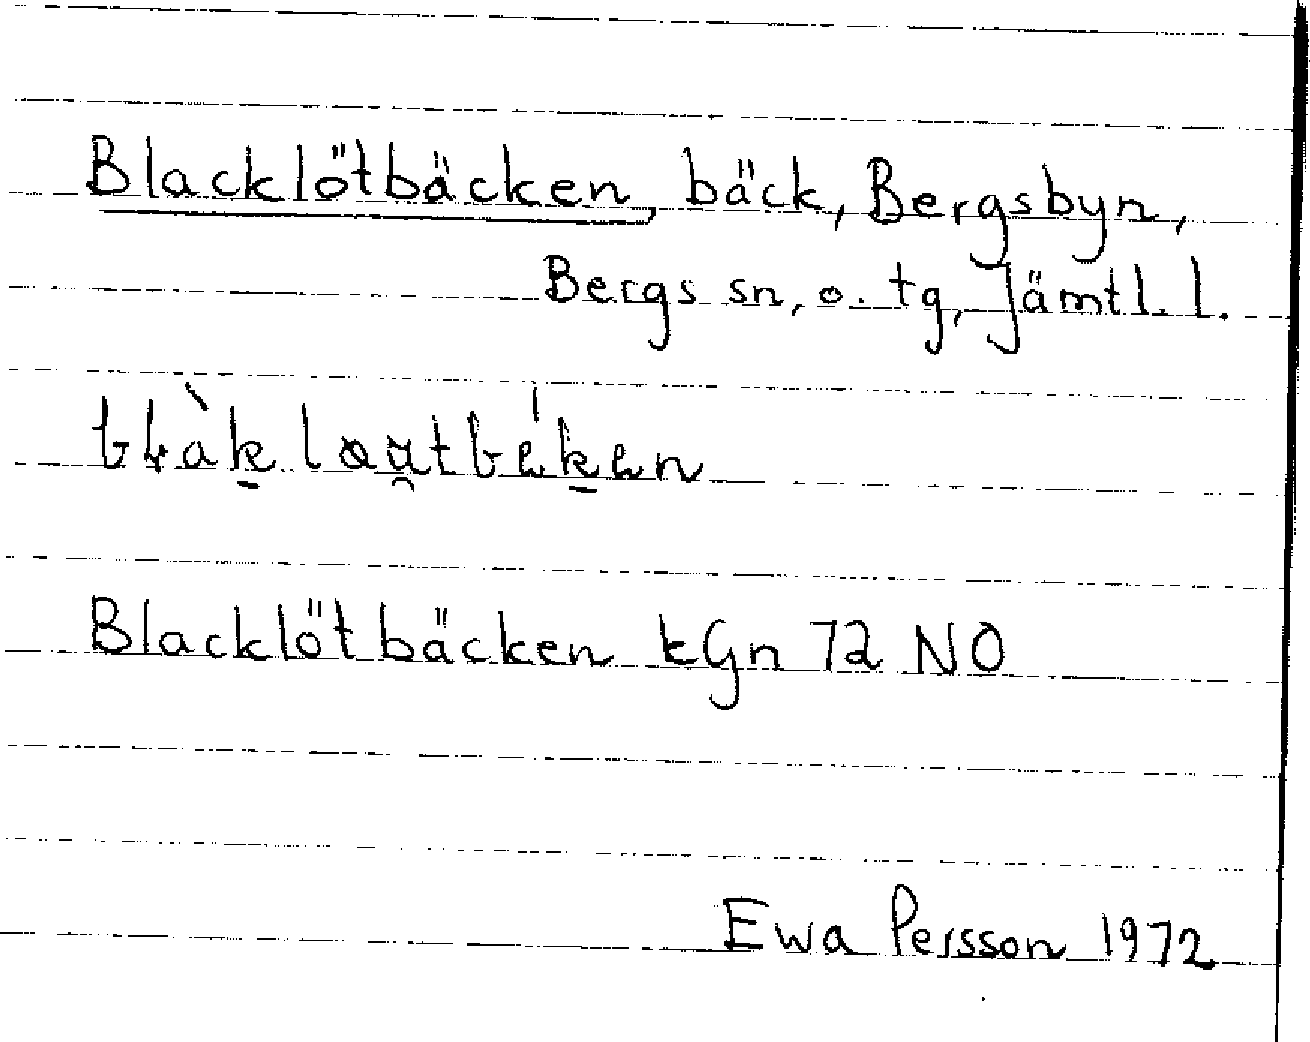 Blacklötbäcken, bäck, Bergsbyn,
Bergs sn, o. tg, Jämtl. l.
Blacklötbäcken kGn 72 NO
Ewa Persson 1972